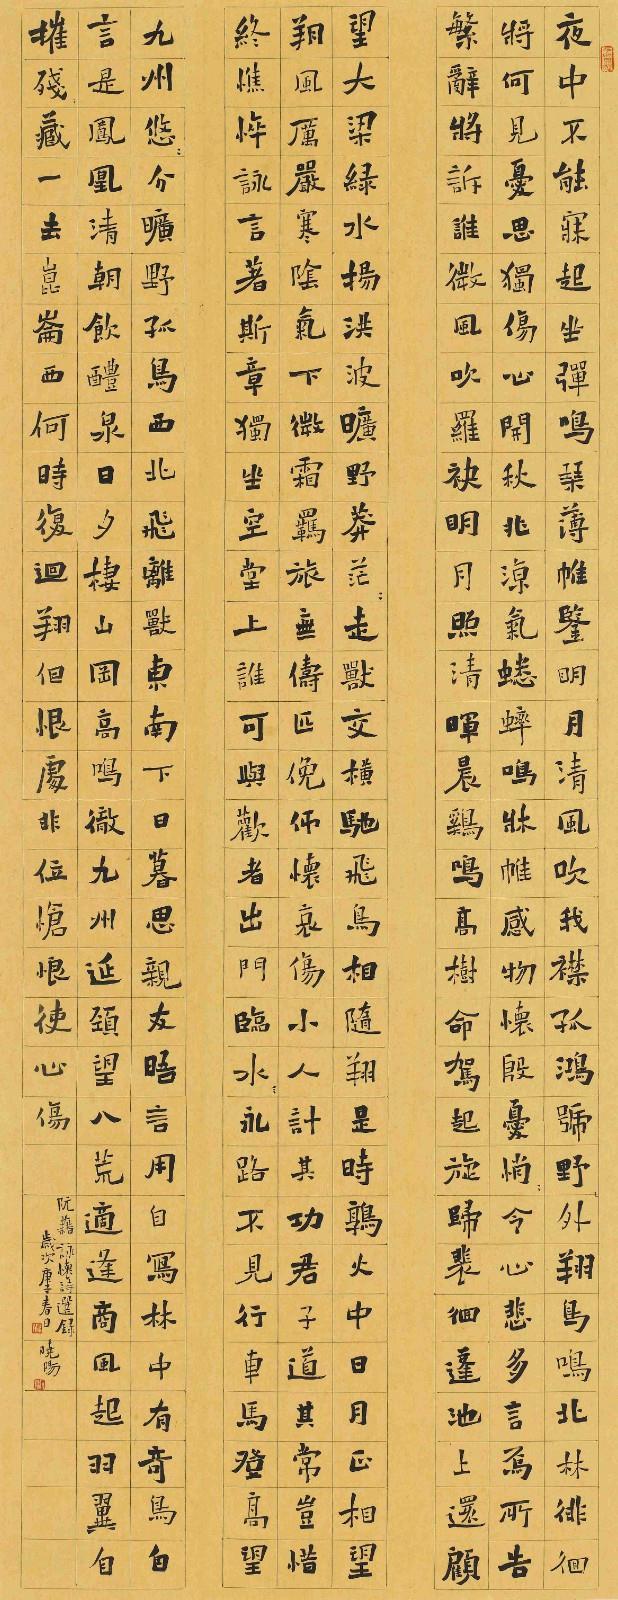 夜中不能寐起坐彈鳴琴薄帷鑒明月清風吹我襟孤鴻號野外翔鳥鳴北林徘徊
將何見憂思獨傷心開秋兆涼氣蟋蟀鳴牀帷感物懷殷憂悄〻令心悲多言焉所告
繁辭將訴誰微風吹羅袂明月照清暉晨鷄鳴高樹命駕起旋歸裴徊蓬池上還顧
望大梁緑水揚洪波曠野莽茫〻走獸交橫馳飛鳥相隨翔是時鶉火中日月正相望
翔風厲嚴寒陰氣下微霜羈旅無儔匹俛仰懷哀傷小人計其功君子道其常豈惜
終憔悴詠言著斯章獨坐空堂上誰可與歡者出門臨水〻永路不見行車馬登高望
九州悠〻分曠野孤鳥西北飛離獸東南下日暮思親友晤言用自寫林中有奇鳥自
言是鳳凰清朝飲醴泉日夕棲山岡高鳴徹九州延頸望八荒適逢商風起羽翼自
摧殘藏一去崑崙西何時復迴翔但恨處非位愴悢使心傷
阮籍詠懷詩選録
歲次庚子春日
曉陽